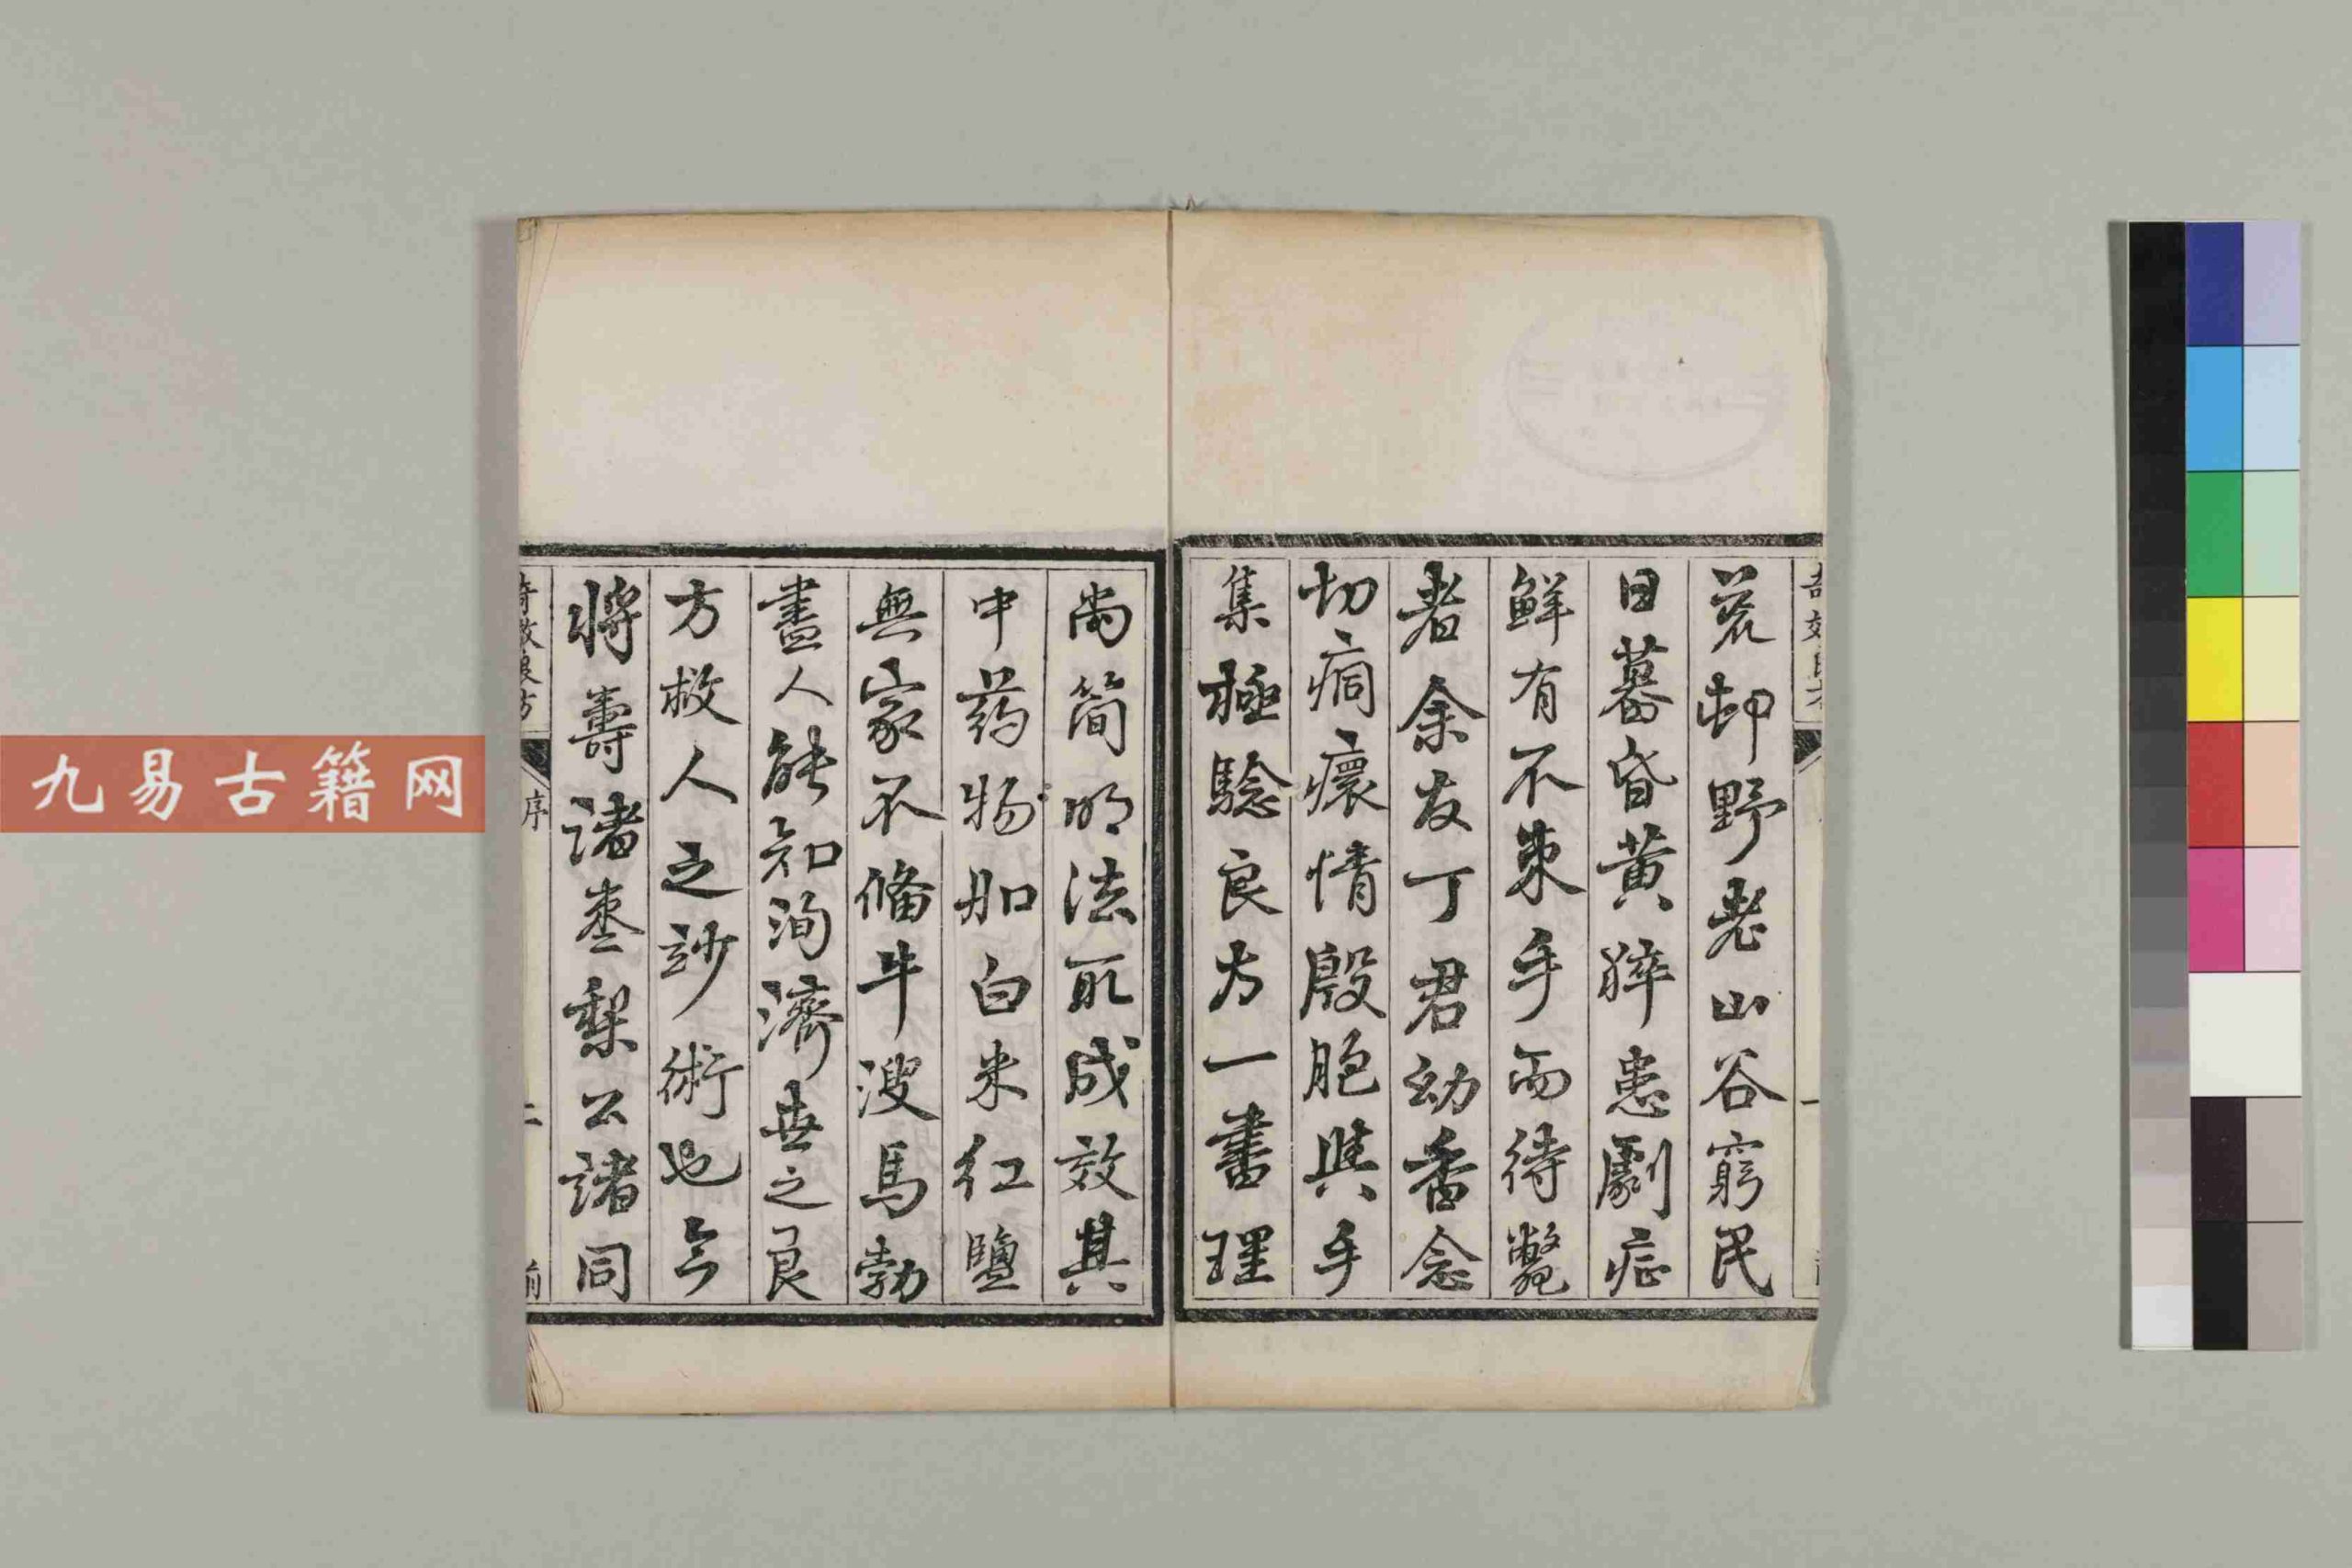 荒邨野老山谷窮民
日暮昏黃猝患劇症
鮮有不束手而待斃
者余友丁君幼香念
切痌瘝情殷胞與手
集極驗良方一書理
尚簡明法取成效其
中药物如白米红鹽
無家不俻牛溲馬勃
盡人能知洵濟世之良
方救人之妙術也今
將壽諸棗梨公諸同
奇效良方
序
二
九易古籍网